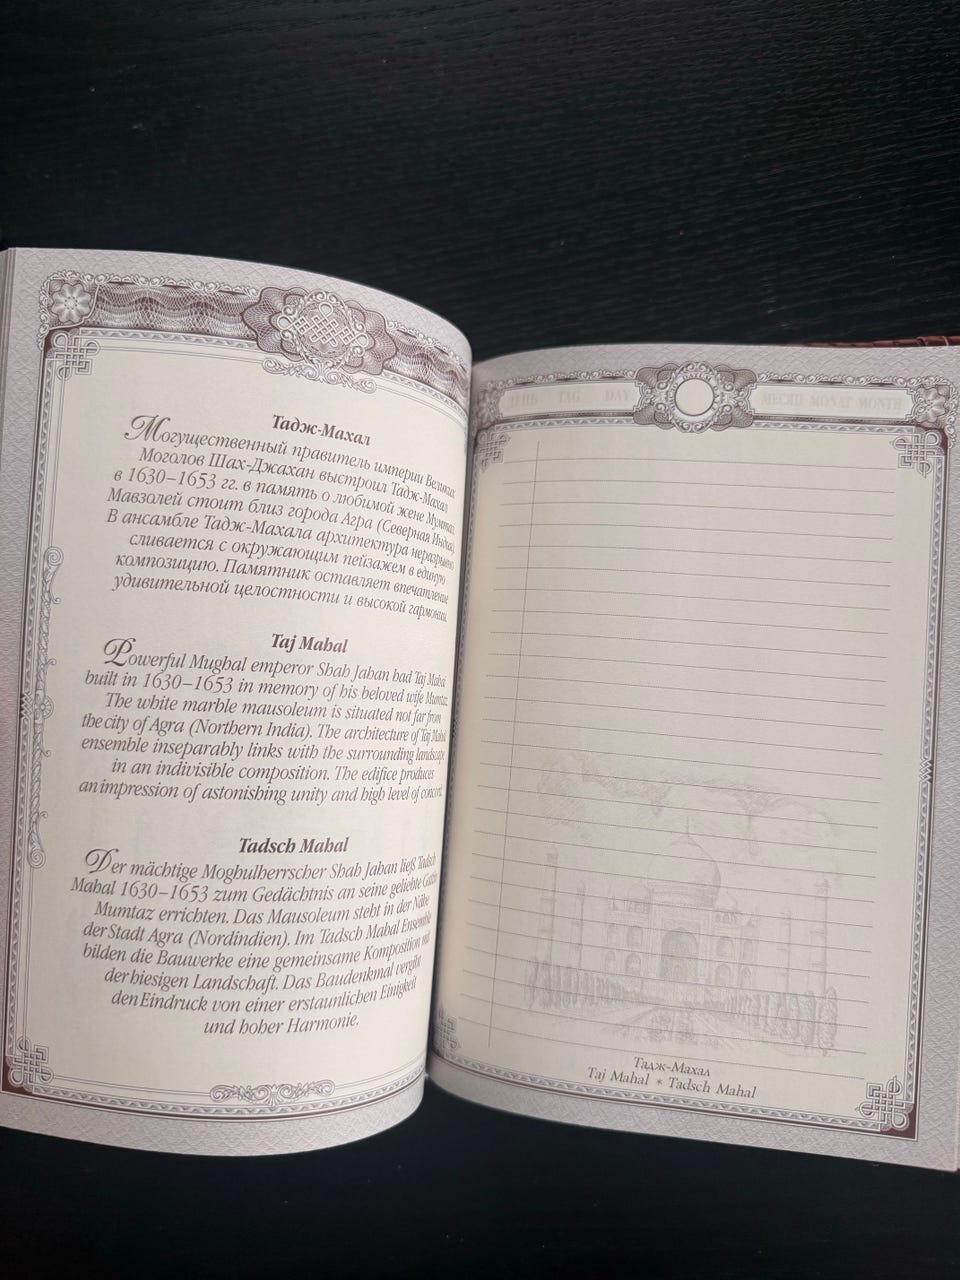 Тадж-Махал
Могущественный правитель империи Великих
Моголов Шах-Джахан выстроил Тадж-Махал
в 1630–1653 гг. в память о любимой жене Мумтаз.
Мавзолей стоит близ города Агра (Северная Индия).
В ансамбле Тадж-Махала архитектура неразрывно
сливается с окружающим пейзажем в единую
композицию. Памятник оставляет впечатление
удивительной целостности и высокой гармонии.
Taj Mahal
Powerful Mughal emperor Shah Jahan had Taj Mahal
built in 1630–1653 in memory of his beloved wife Mumtaz.
The white marble mausoleum is situated not far from
the city of Agra (Northern India). The architecture of Taj Mahal
ensemble inseparably links with the surrounding landscape
in an indivisible composition. The edifice produces
an impression of astonishing unity and high level of concord.
Tadsch Mahal
Der mächtige Moghulherrscher Shah Jahan ließ Tadsch
Mahal 1630–1653 zum Gedächtnis an seine geliebte Gattin
Mumtaz errichten. Das Mausoleum steht in der Nähe
der Stadt Agra (Nordindien). Im Tadsch Mahal Ensemble
bilden die Bauwerke eine gemeinsame Komposition mit
der hiesigen Landschaft. Das Baudenkmal vergibt
den Eindruck von einer erstaunlichen Einigkeit
und hoher Harmonie.
ДЕНЬ TAG DAY
МЕСЯЦ MONAT MONTH
Тадж-Махал
Taj Mahal * Tadsch Mahal